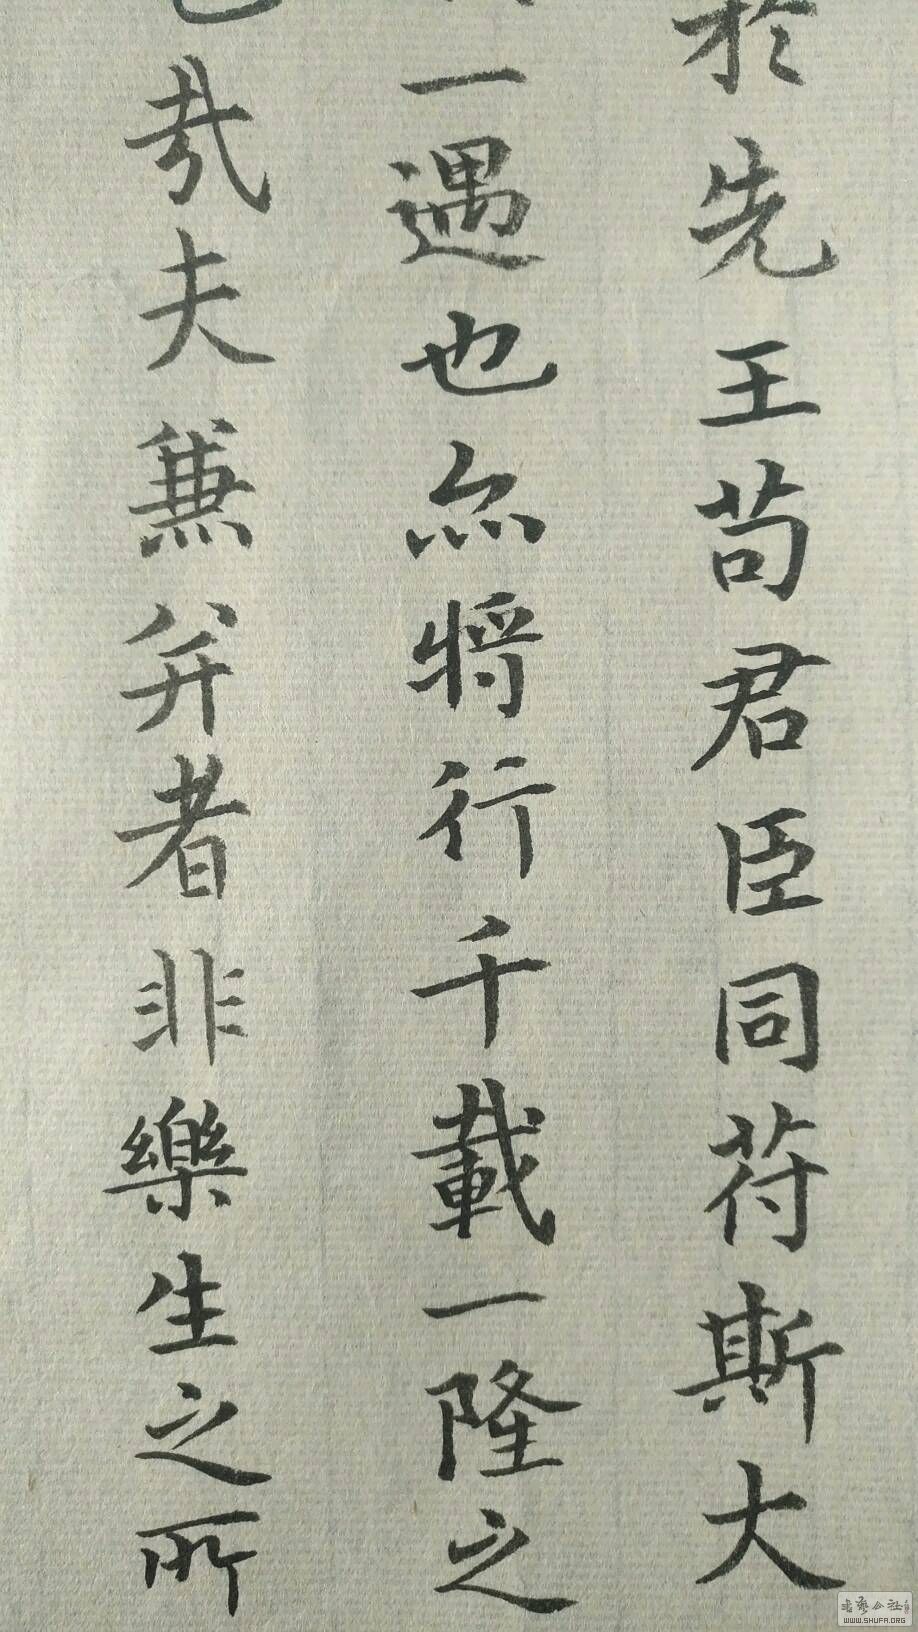 於先王苟君臣同苻斯大
一遇也亦将行千載一隆之
哉夫兼并者非樂生之所
WWW.SHUFA.ORG